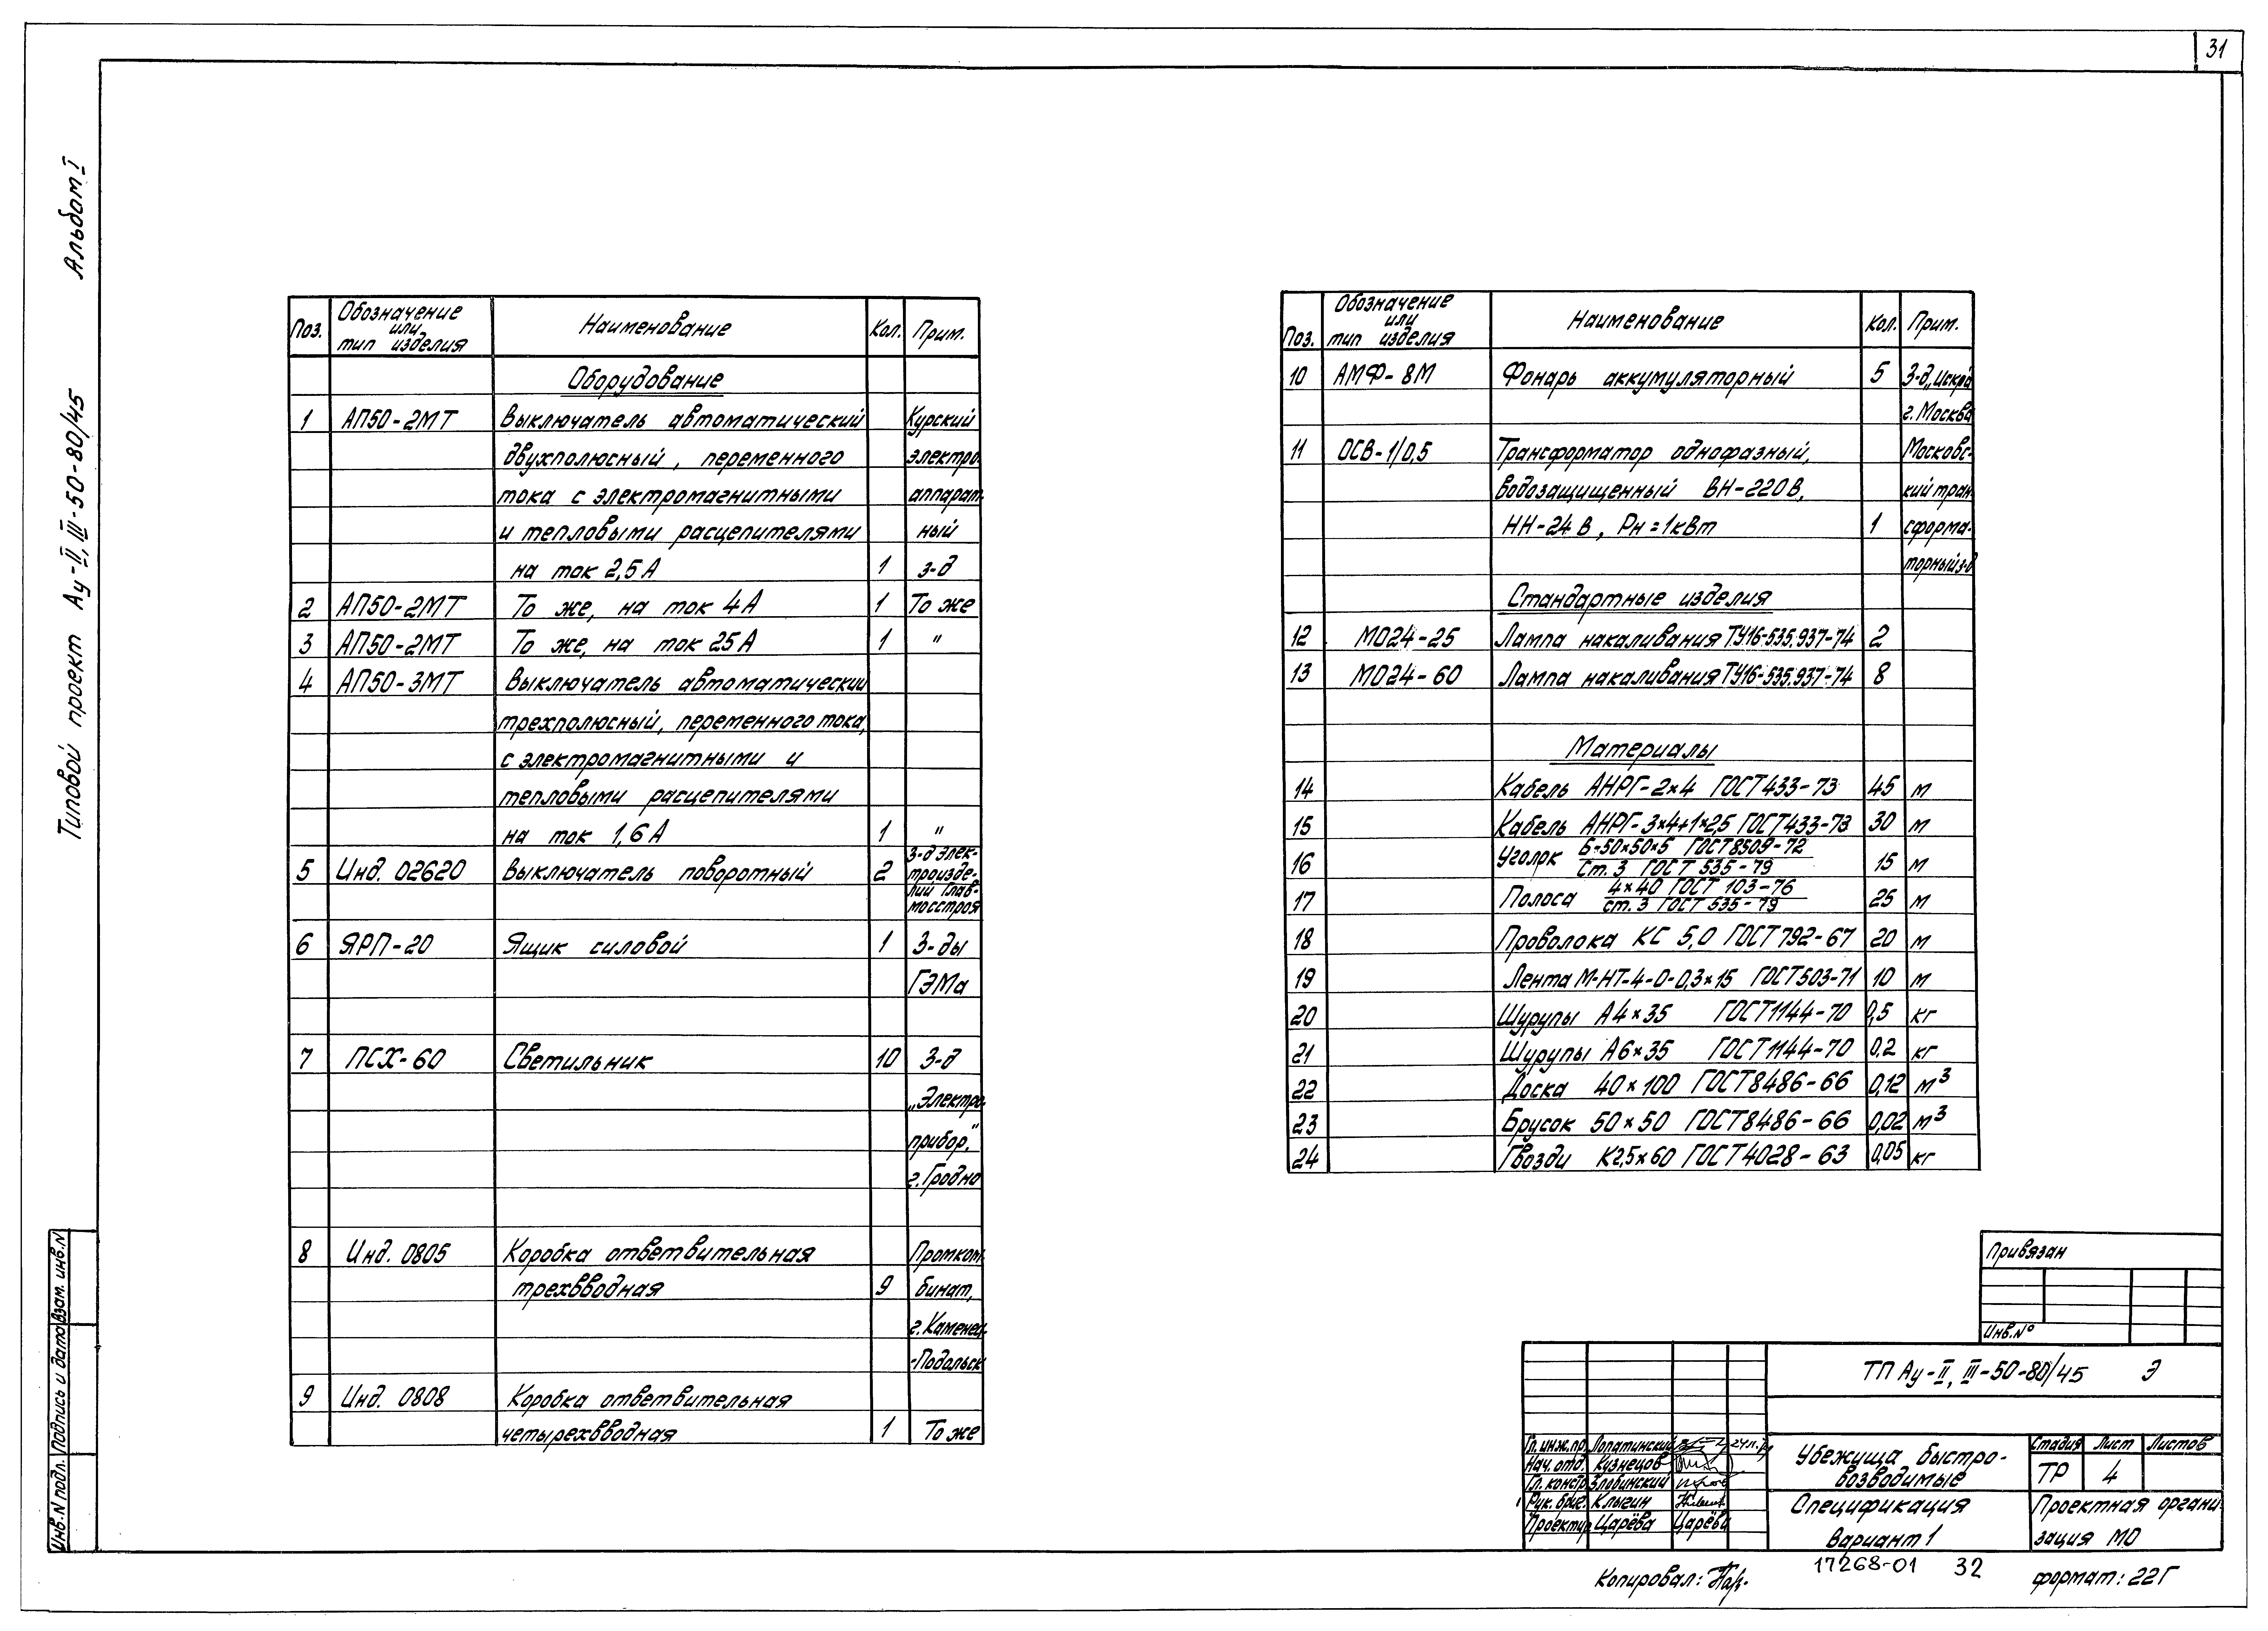 31
Типовой проект Ау-II, III-50-80/45 Альбом I
Поз. Обозначение или тип изделия Наименование Кол. Прим.
Оборудование
1 АП50-2МТ Выключатель автоматический Курский
двухполюсный, переменного электро-
тока с электромагнитными аппарат-
и тепловыми расцепителями ный
на ток 2,5А 1 з-д
2 АП50-2МТ То же, на ток 4А 1 То же
3 АП50-2МТ То же, на ток 25А 1 "
4 АП50-3МТ Выключатель автоматический
трехполюсный, переменного тока,
с электромагнитными и
тепловыми расцепителями
на ток 1,6А 1 "
5 Инд. 02620 Выключатель поворотный 2 З-д элек-
произде-
лий Глав-
мосстроя
6 ЯРП-20 Ящик силовой 1 З-ды
ГЭМа
7 ПСХ-60 Светильник 10 З-д
„Электро-
прибор,"
г. Гродно
8 Инд. 0805 Коробка ответвительная Промком-
трехвводная 9 бинат,
г. Каменец-
-Подольск
9 Инд. 0808 Коробка ответвительная
четырехвводная 1 То же
Поз. Обозначение или тип изделия Наименование Кол. Прим.
10 АМФ-8М Фонарь аккумуляторный 5 З-д „Искра
г. Москва
11 ОСВ-1/0,5 Трансформатор однофазный, Московс-
водозащищенный ВН-220В, кий тран-
НН-24В, Рн=1кВт 1 сформа-
торный з-д
Стандартные изделия
12 МО24-25 Лампа накаливания ТУ16-535.937-74 2
13 МО24-60 Лампа накаливания ТУ16-535.937-74 8
Материалы
14 Кабель АНРГ-2×4 ГОСТ433-73 45 м
15 Кабель АНРГ-3×4+1×2,5 ГОСТ433-73 30 м
16 Уголок Б-50×50×5 ГОСТ8509-72 15 м
Ст. 3 ГОСТ 535-79
17 Полоса 4×40 ГОСТ 103-76 25 м
ст. 3 ГОСТ 535-79
18 Проволока КС 5,0 ГОСТ792-67 20 м
19 Лента М-НТ-4-0-0,3×15 ГОСТ503-71 10 м
20 Шурупы А4×35 ГОСТ1144-70 0,5 кг
21 Шурупы А6×35 ГОСТ1144-70 0,2 кг
22 Доска 40×100 ГОСТ8486-66 0,12 м³
23 Брусок 50×50 ГОСТ8486-66 0,02 м³
24 Гвозди К2,5×60 ГОСТ4028-63 0,05 кг
Привязан
Инв. №
ТП Ау-II, III-50-80/45 Э
Гл. инж. пр. Лопатинский
Нач. отд. Кузнецов
Гл. констр. Злобинский
Рук. бриг. Клыгин
Проектир. Царёва Царёва
Убежища быстро-
возводимые
Стадия Лист Листов
ТР 4
Спецификация
Вариант 1
Проектная органи
зация МО
Инв. N подл. Подпись и дата Взам. инв. N
Копировал:
17268-01 32
формат: 22Г